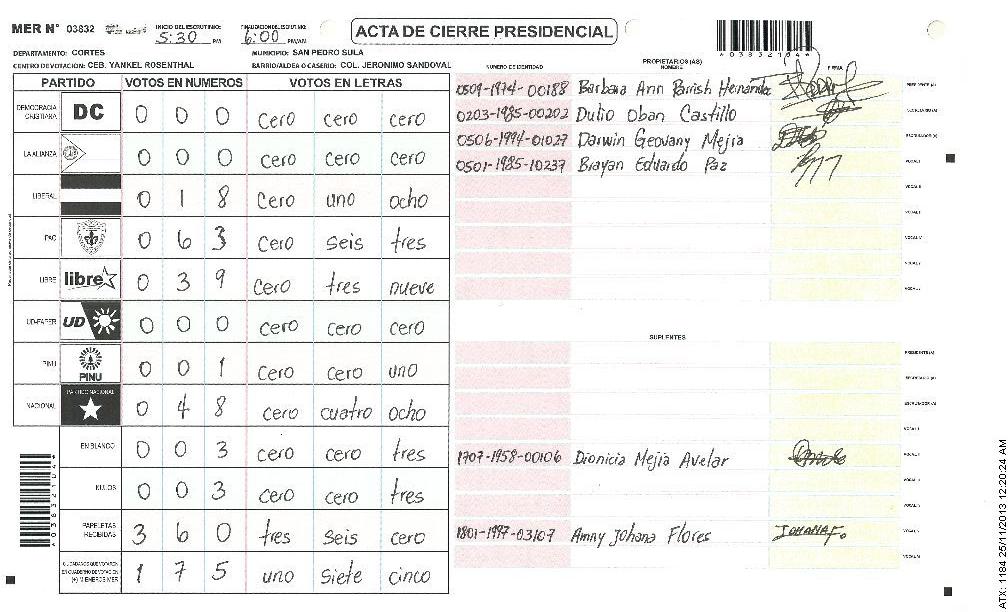 MER Nº 03832 INICIO DEL ESCRUTINIO: 5:30 PM FINALIZACION DEL ESCRUTINIO: 6:00 PM/AM ACTA DE CIERRE PRESIDENCIAL
DEPARTAMENTO: CORTES MUNICIPIO: SAN PEDRO SULA
CENTRO DE VOTACION: CEB. YANKEL ROSENTHAL BARRIO/ALDEA O CASERIO: COL. JERONIMO SANDOVAL
PARTIDO VOTOS EN NUMEROS VOTOS EN LETRAS
DEMOCRACIA CRISTIANA DC 0 0 0 cero cero cero
LA ALIANZA 0 0 0 cero cero cero
LIBERAL 0 1 8 cero uno ocho
PAC 0 6 3 cero seis tres
LIBRE libre 0 3 9 cero tres nueve
UD-FAPER UD 0 0 0 cero cero cero
PINU PINU 0 0 1 cero cero uno
NACIONAL PARTIDO NACIONAL 0 4 8 cero cuatro ocho
EN BLANCO 0 0 3 cero cero tres
NULOS 0 0 3 cero cero tres
PAPELETAS RECIBIDAS 3 6 0 tres seis cero
CIUDADANOS QUE VOTARON EN CUADERNO DE VOTACION (+) MIEMBROS MER 1 7 5 uno siete cinco
PROPIETARIOS (AS)
NUMERO DE IDENTIDAD NOMBRE FIRMA
0501-1974-00188 Barbara Ann Parrish Hernandez PRESIDENTE (A)
0203-1985-00202 Dulio Oban Castillo SECRETARIO (A)
0506-1994-01027 Darwin Geovany Mejia ESCRUTADOR (A)
0501-1985-10237 Brayan Eduardo Paz VOCAL I
VOCAL II
VOCAL III
VOCAL IV
VOCAL V
SUPLENTES
PRESIDENTE (A)
SECRETARIO (A)
ESCRUTADOR (A)
VOCAL I
1707-1958-00106 Dionicia Mejia Avelar VOCAL II
VOCAL III
VOCAL IV
1801-1997-03107 Amny Johana Flores JOHANA F. VOCAL V
VOCAL VI
ATX: 1184 25/11/2013 12:20:24 AM